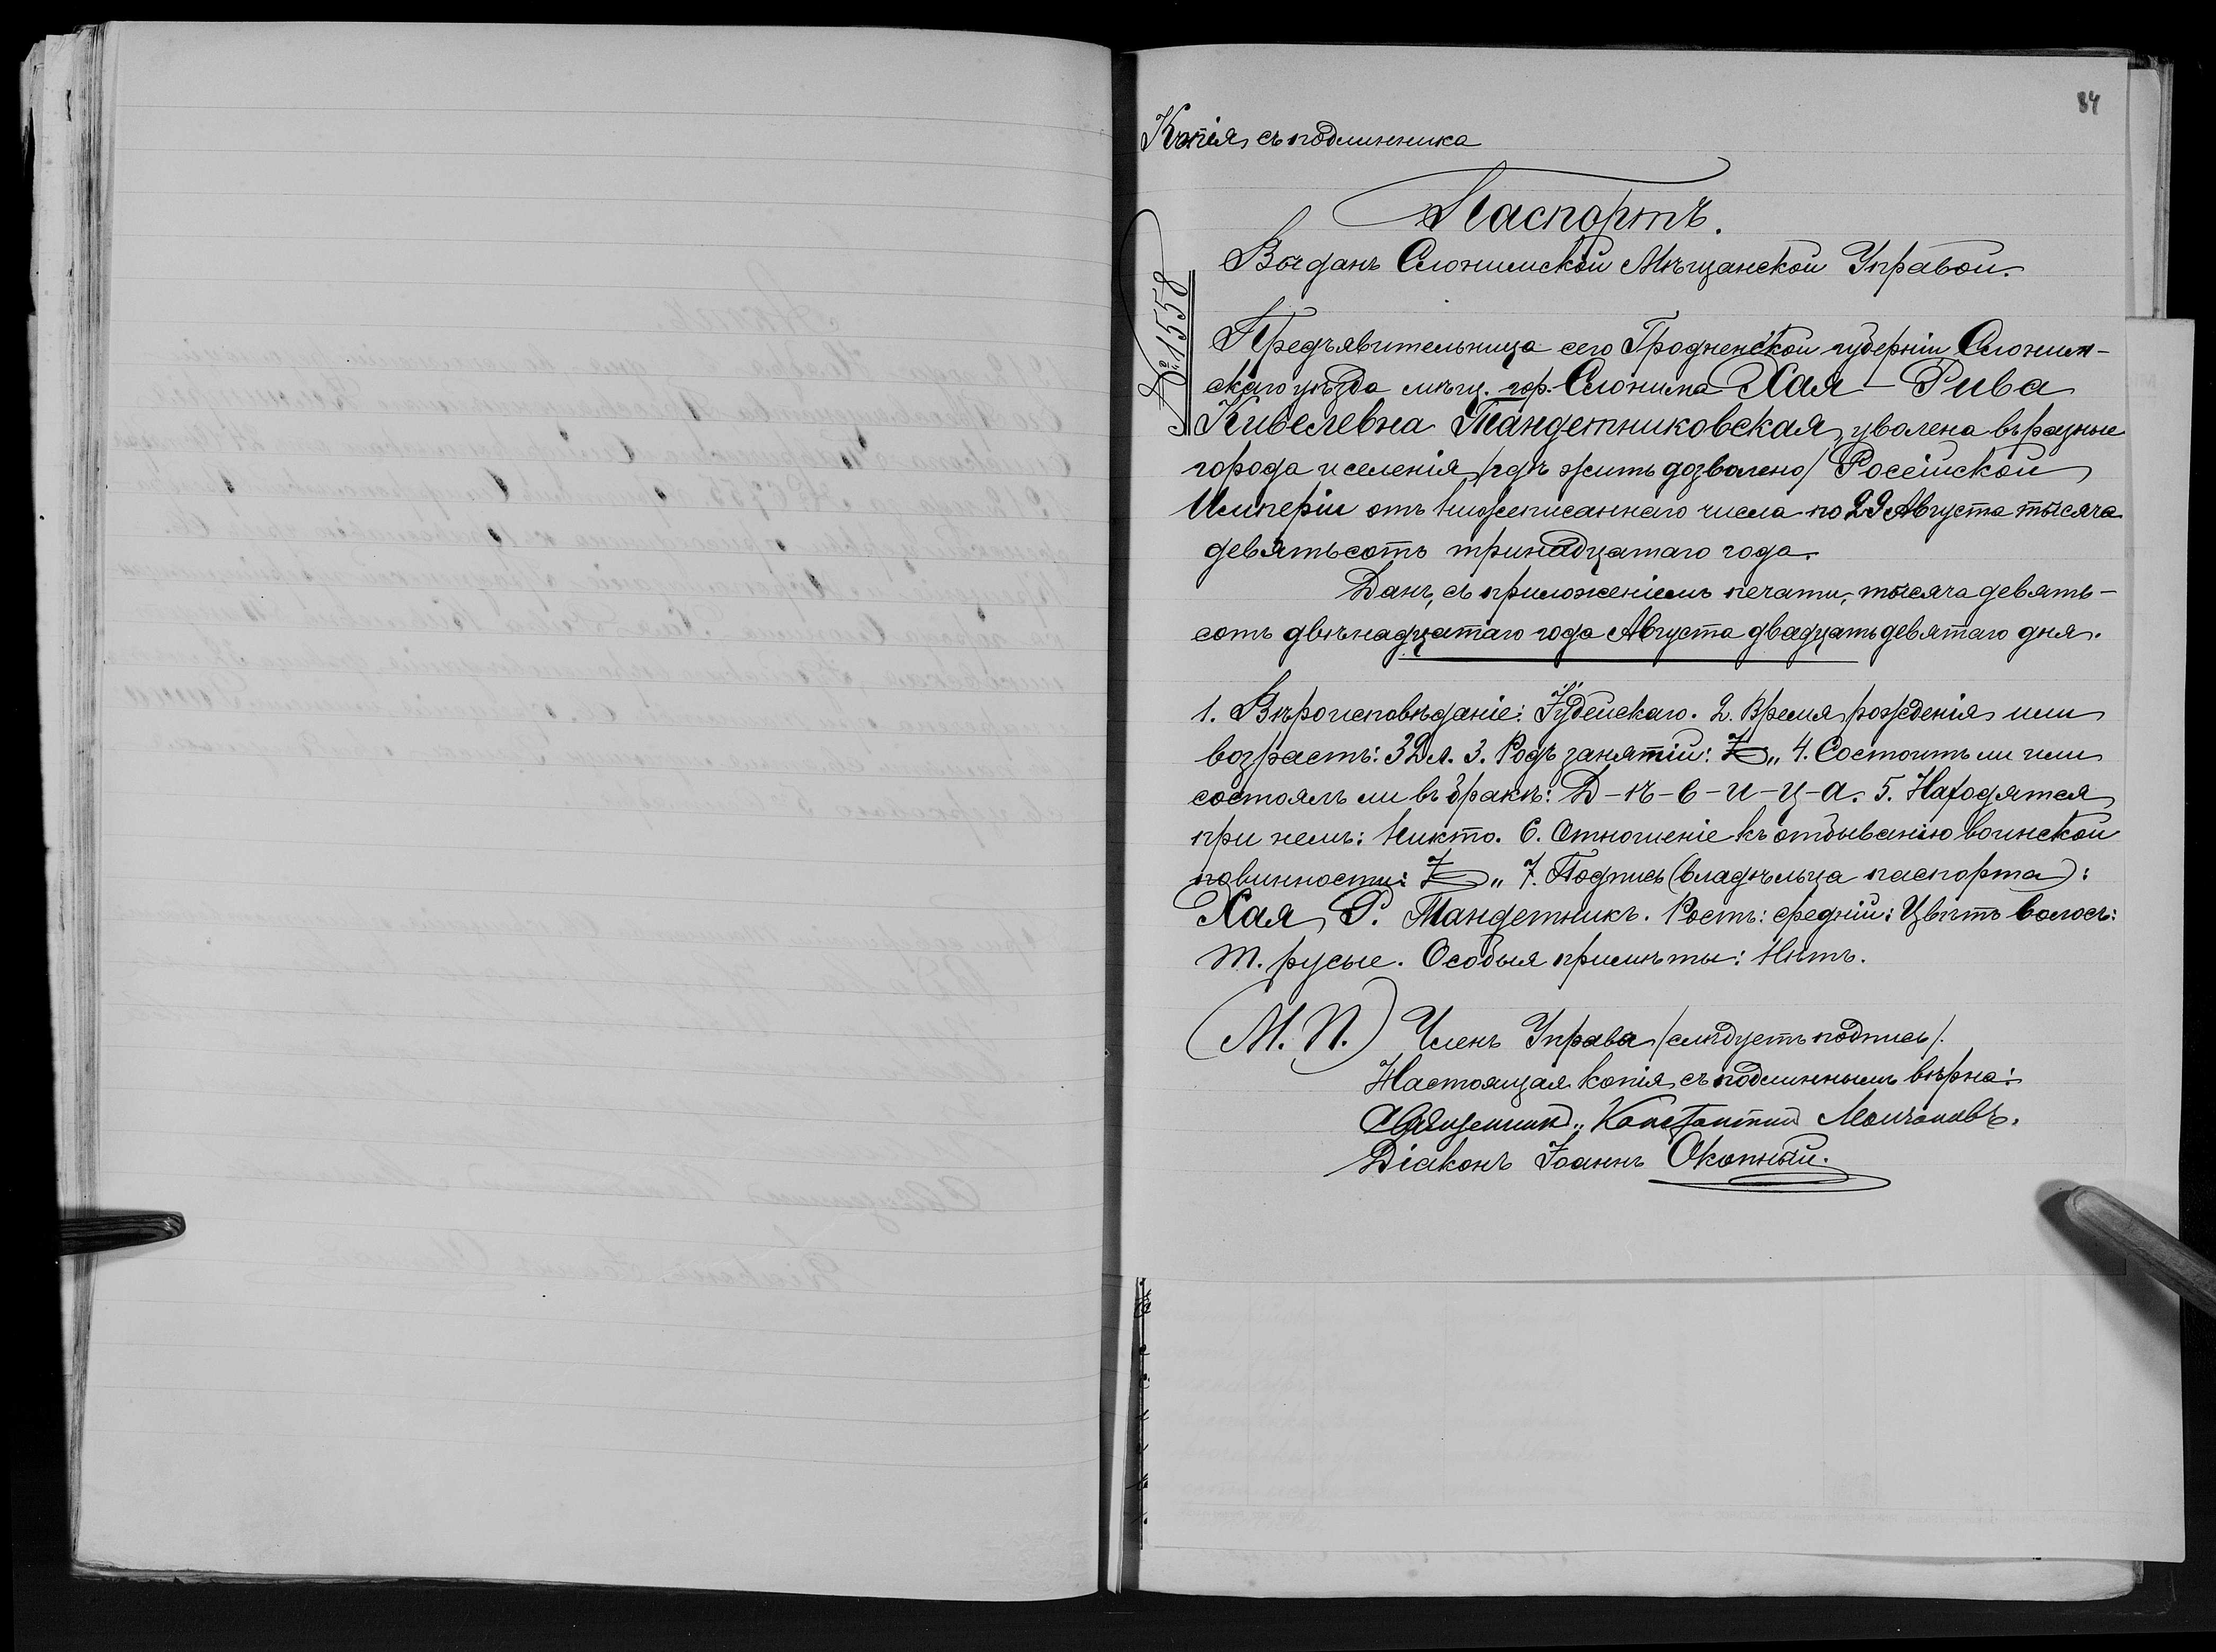 84
Копія съ подлинника
Паспортъ.
Выданъ Слонимской Мѣщанской Управой.
№ 1558
Предъявительница сего Гродненской губерніи Слоним-
скаго уѣзда мѣщ. гор. Слонима Хая – Рива
Кивелевна Тандетниковская, уволена въ разные
города и селенія /гдѣ жить дозволено/ Россійской
Имперіи отъ нижеписаннаго числа по 29 Августа тысяча
девятьсотъ тринадцатаго года.
Данъ, съ приложеніемъ печати, тысяча девять-
сотъ двѣнадцатаго года Августа двадцать девятаго дня.
1. Вѣроисповѣданіе: Іудейскаго. 2. Время рожденія или
возрастъ: 32 л. 3. Родъ занятій: „ 4. Состоитъ ли или
состоялъ ли въ бракѣ: Д-ѣ-в-и-ц-а. 5. Находятся
при немъ: Никто. 6. Отношеніе къ отбыванію воинской
повинности: „ 7. Подпись (владѣльца паспорта):
Хая Р. Тандетникъ. Ростъ: средній: Цвѣтъ волосъ:
т. русые. Особыя примѣты: Нѣтъ.
(М. П.) Членъ Управы /слѣдуетъ подпись/.
Настоящая копія съ подлиннымъ вѣрна:
Священникъ Константинъ Молчановъ.
Діаконъ Іоаннъ Окопный.